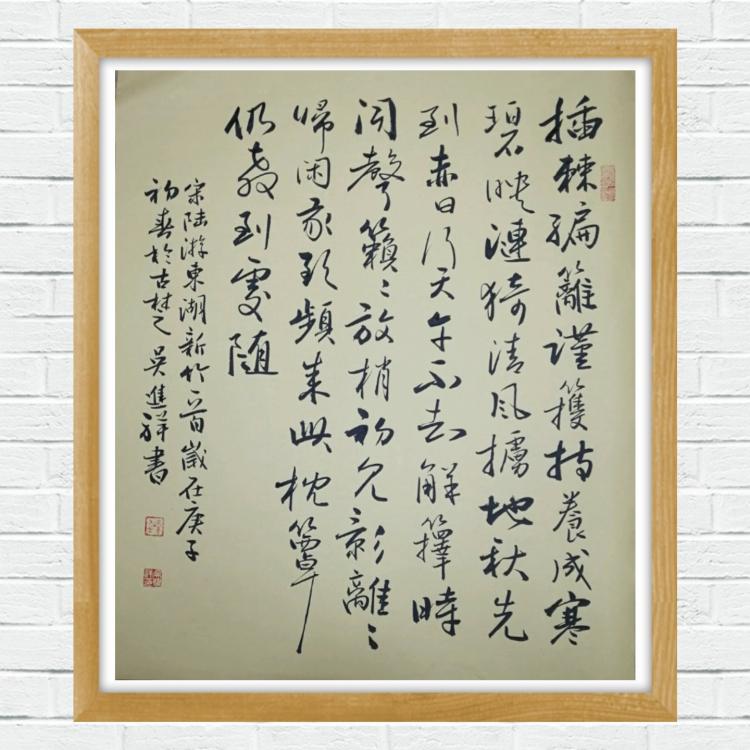 插棘編籬謹護持養成寒
碧映漣猗清風擄地秋先
到赤日行天午不知解籜時
聞聲籟〻放梢初見影離〻
歸閑我欲頻來此枕簟
仍教到處随
宋陸游東湖新竹一首歲在庚子
初春於古 吳進祥書